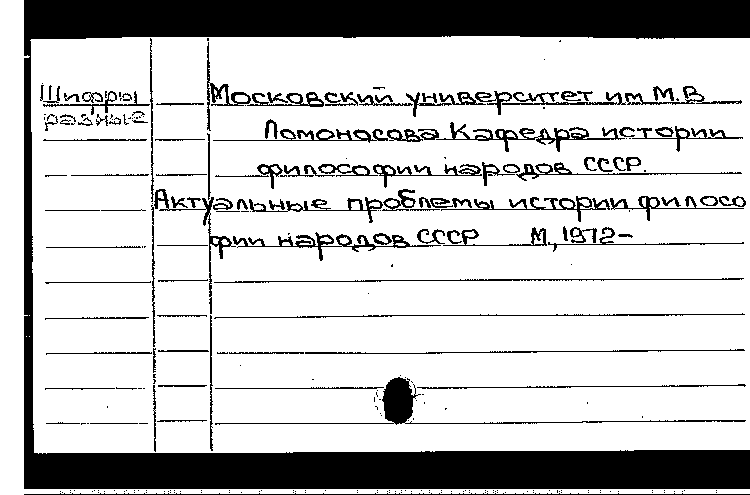 Шифры
разные
Московский университет им М.В
Ломоносова Кафедра истории
философии народов СССР.
Актуальные проблемы истории филосо
фии народов СССР М., 1972-